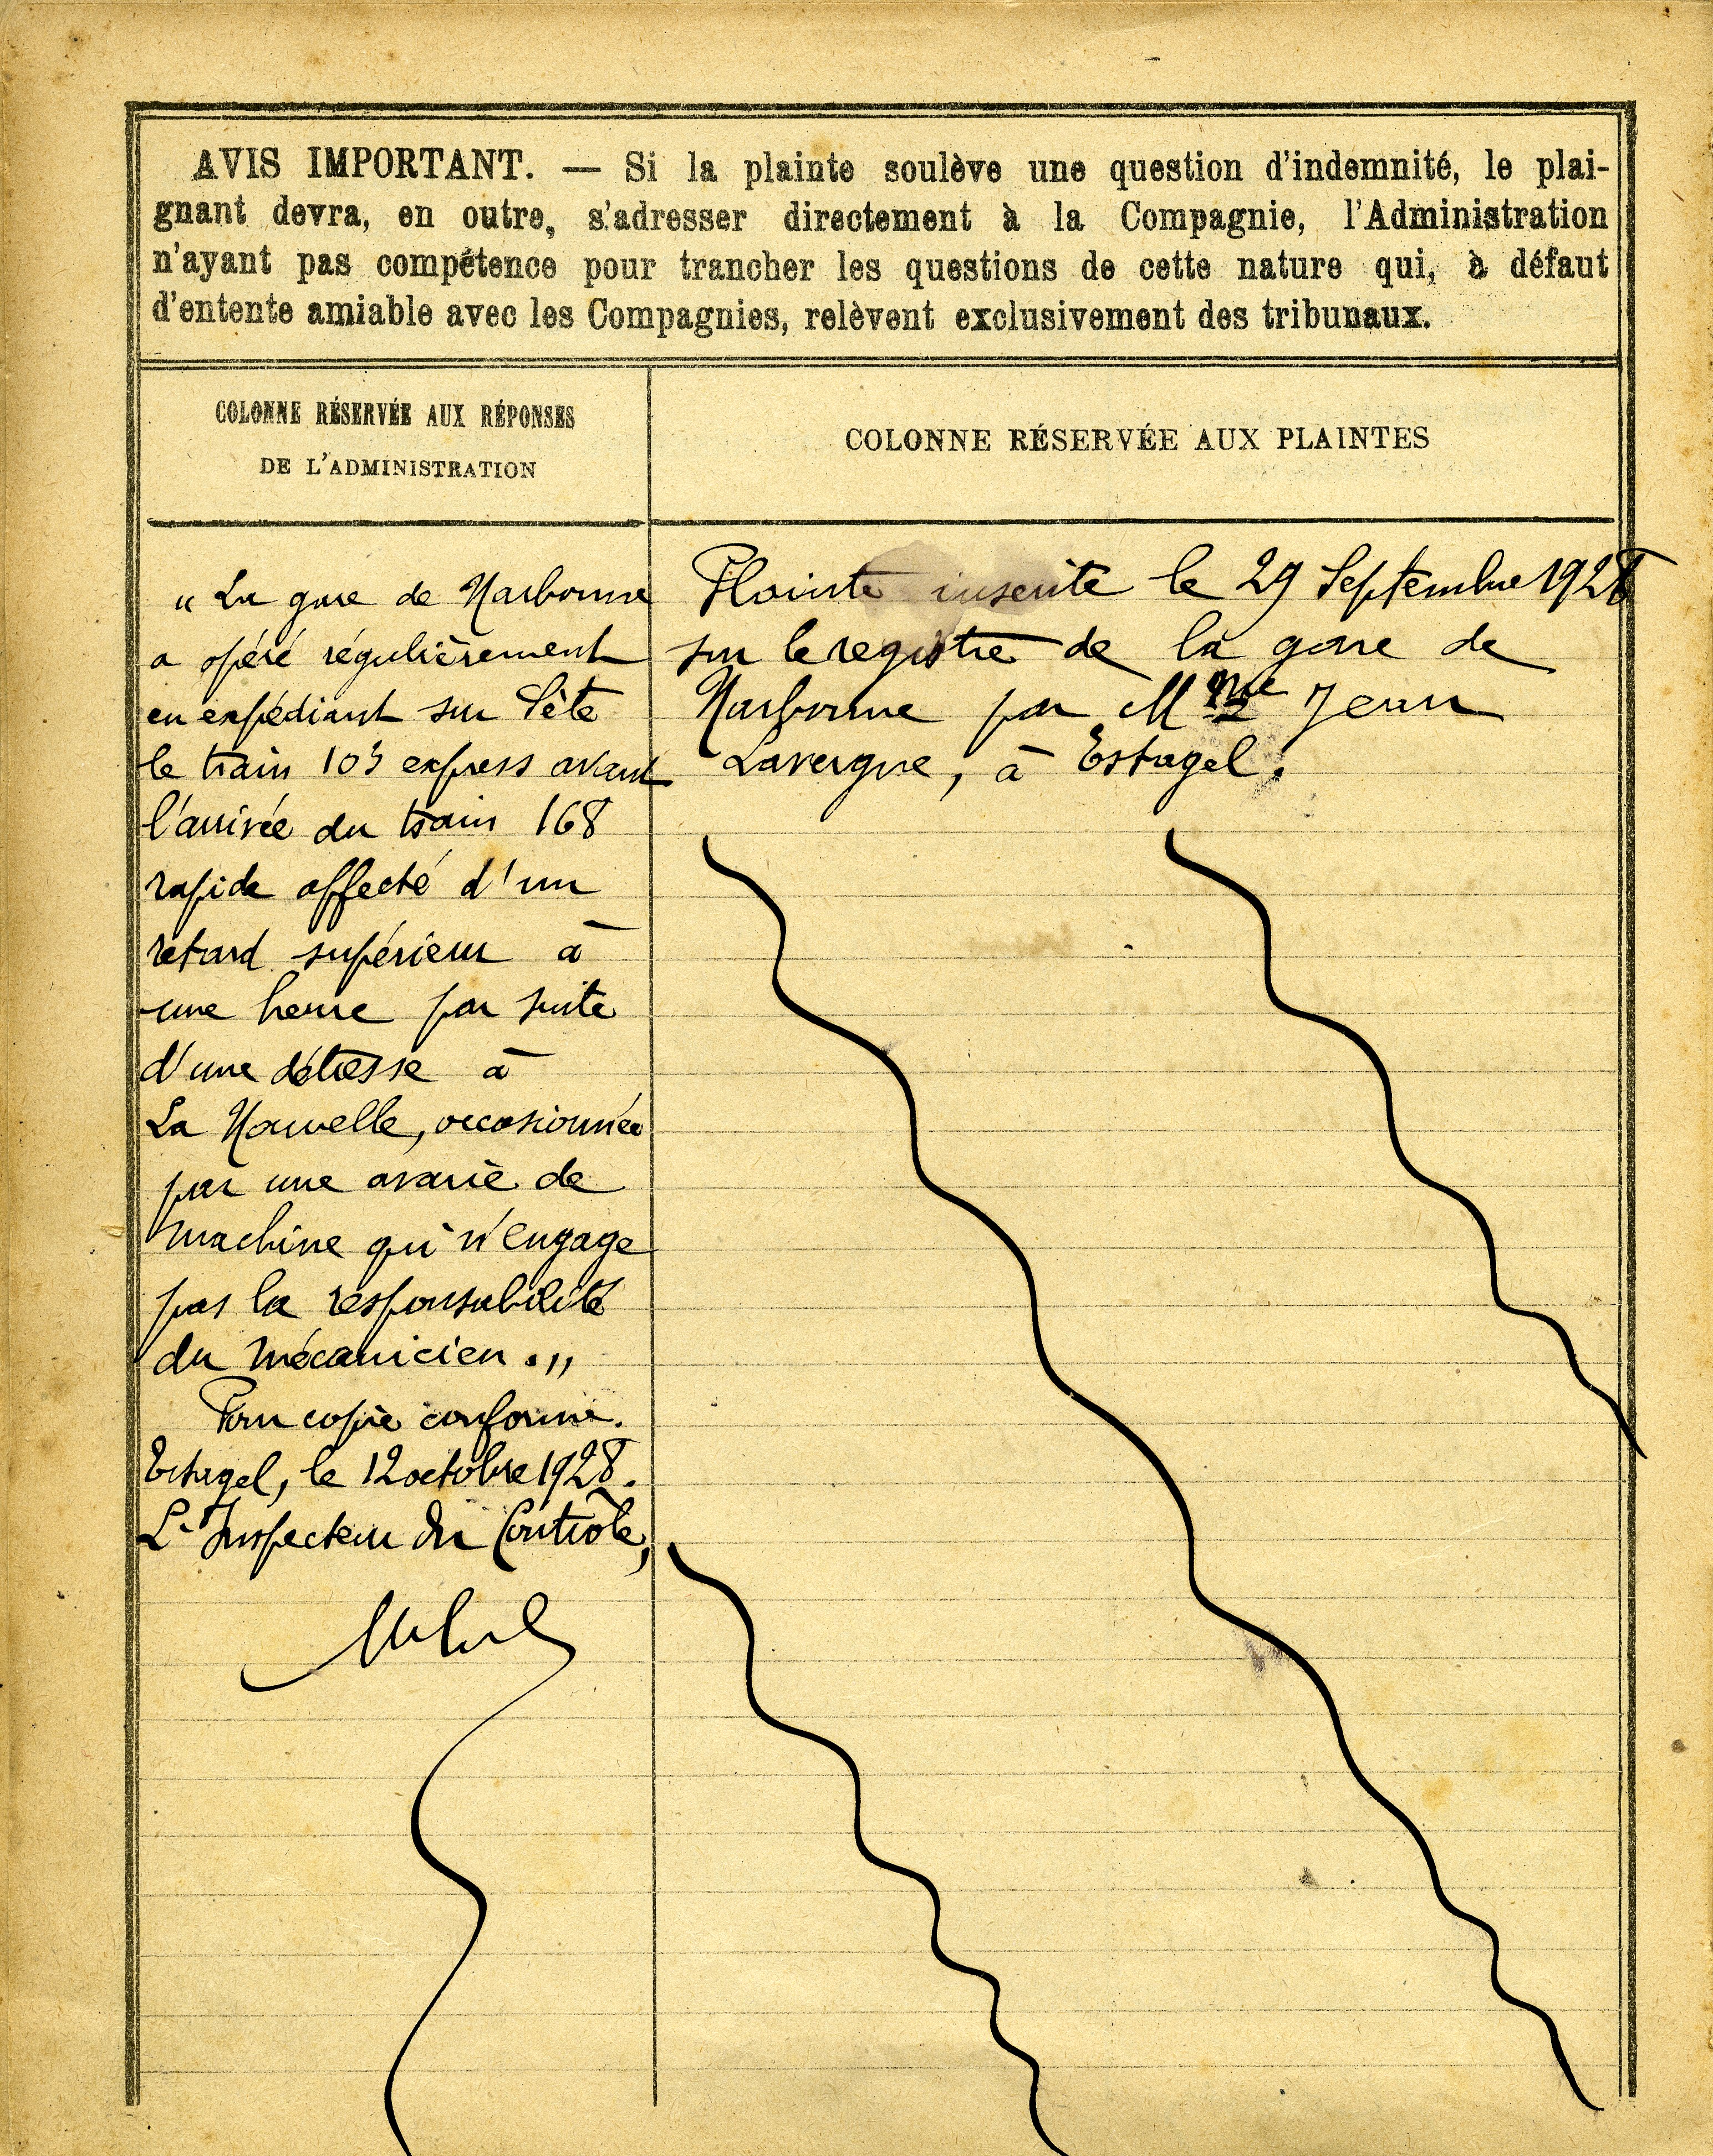 AVIS IMPORTANT. — Si la plainte soulève une question d'indemnité, le plai-
gnant devra, en outre, s'adresser directement à la Compagnie, l'Administration
n'ayant pas compétence pour trancher les questions de cette nature qui, à défaut
d'entente amiable avec les Compagnies, relèvent exclusivement des tribunaux.
COLONNE RÉSERVÉE AUX RÉPONSES
DE L'ADMINISTRATION
"La gare de Narbonne
a opéré régulièrement
en expédiant sur Sète
le train 103 express avant
l'arrivée du train 168
rapide affecté d'un
retard supérieur à
une heure par suite
d'une détresse à
La Nouvelle, occasionnée
par une avarie de
machine qui n'engage
pas la responsabilité
du mécanicien."
Pour copie conforme.
Estagel, le 12 octobre 1928.
L'Inspecteur du Contrôle,
COLONNE RÉSERVÉE AUX PLAINTES
Plainte inscrite le 29 Septembre 1928
sur le registre de la gare de
Narbonne par Mme Jean
Lavergne, à Estagel.